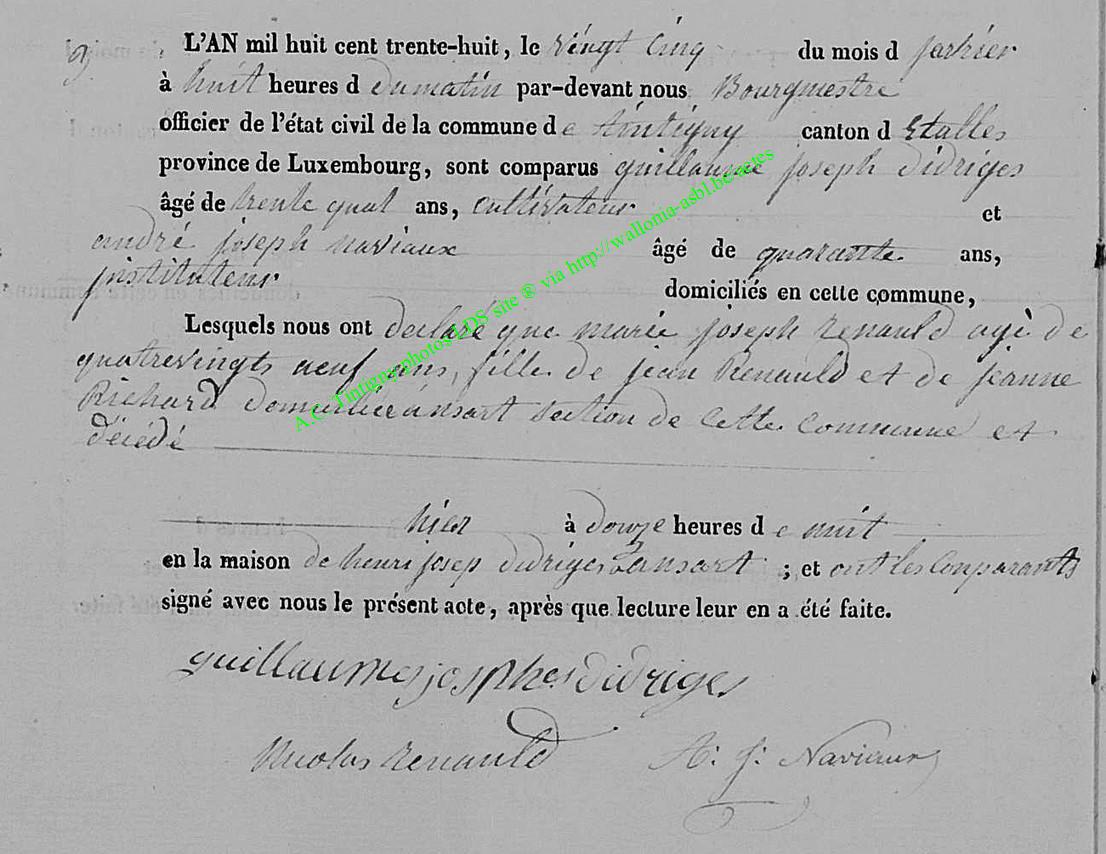 L'AN mil huit cent trente-huit, le vingt cinq du mois d janvier
à huit heures d du matin par-devant nous Bourgmestre
officier de l'état civil de la commune d e tintigny canton d Etalles
province de Luxembourg, sont comparus guillaume joseph didriges
âgé de trente quat ans, cultivateur et
andré joseph naviaux âgé de quarante ans,
jnstituteur domiciliés en cette commune,
Lesquels nous ont declaré que marie joseph Renauld agé de
quatrevingts neuf ans, fille de jean Renauld et de jeanne
Richard domiciliée ansart section de cette commune et
décédé
hier à douze heures d e nuit
en la maison de henri josep didriges ansart ; et ont les conparants
signé avec nous le présent acte, après que lecture leur en a été faite.
guillaume josphe didriges
Nicolas Renauld A: j: Naviaux
A.C. Tintigny photos LDS site ® via http://wallonia-asbl.be/actes